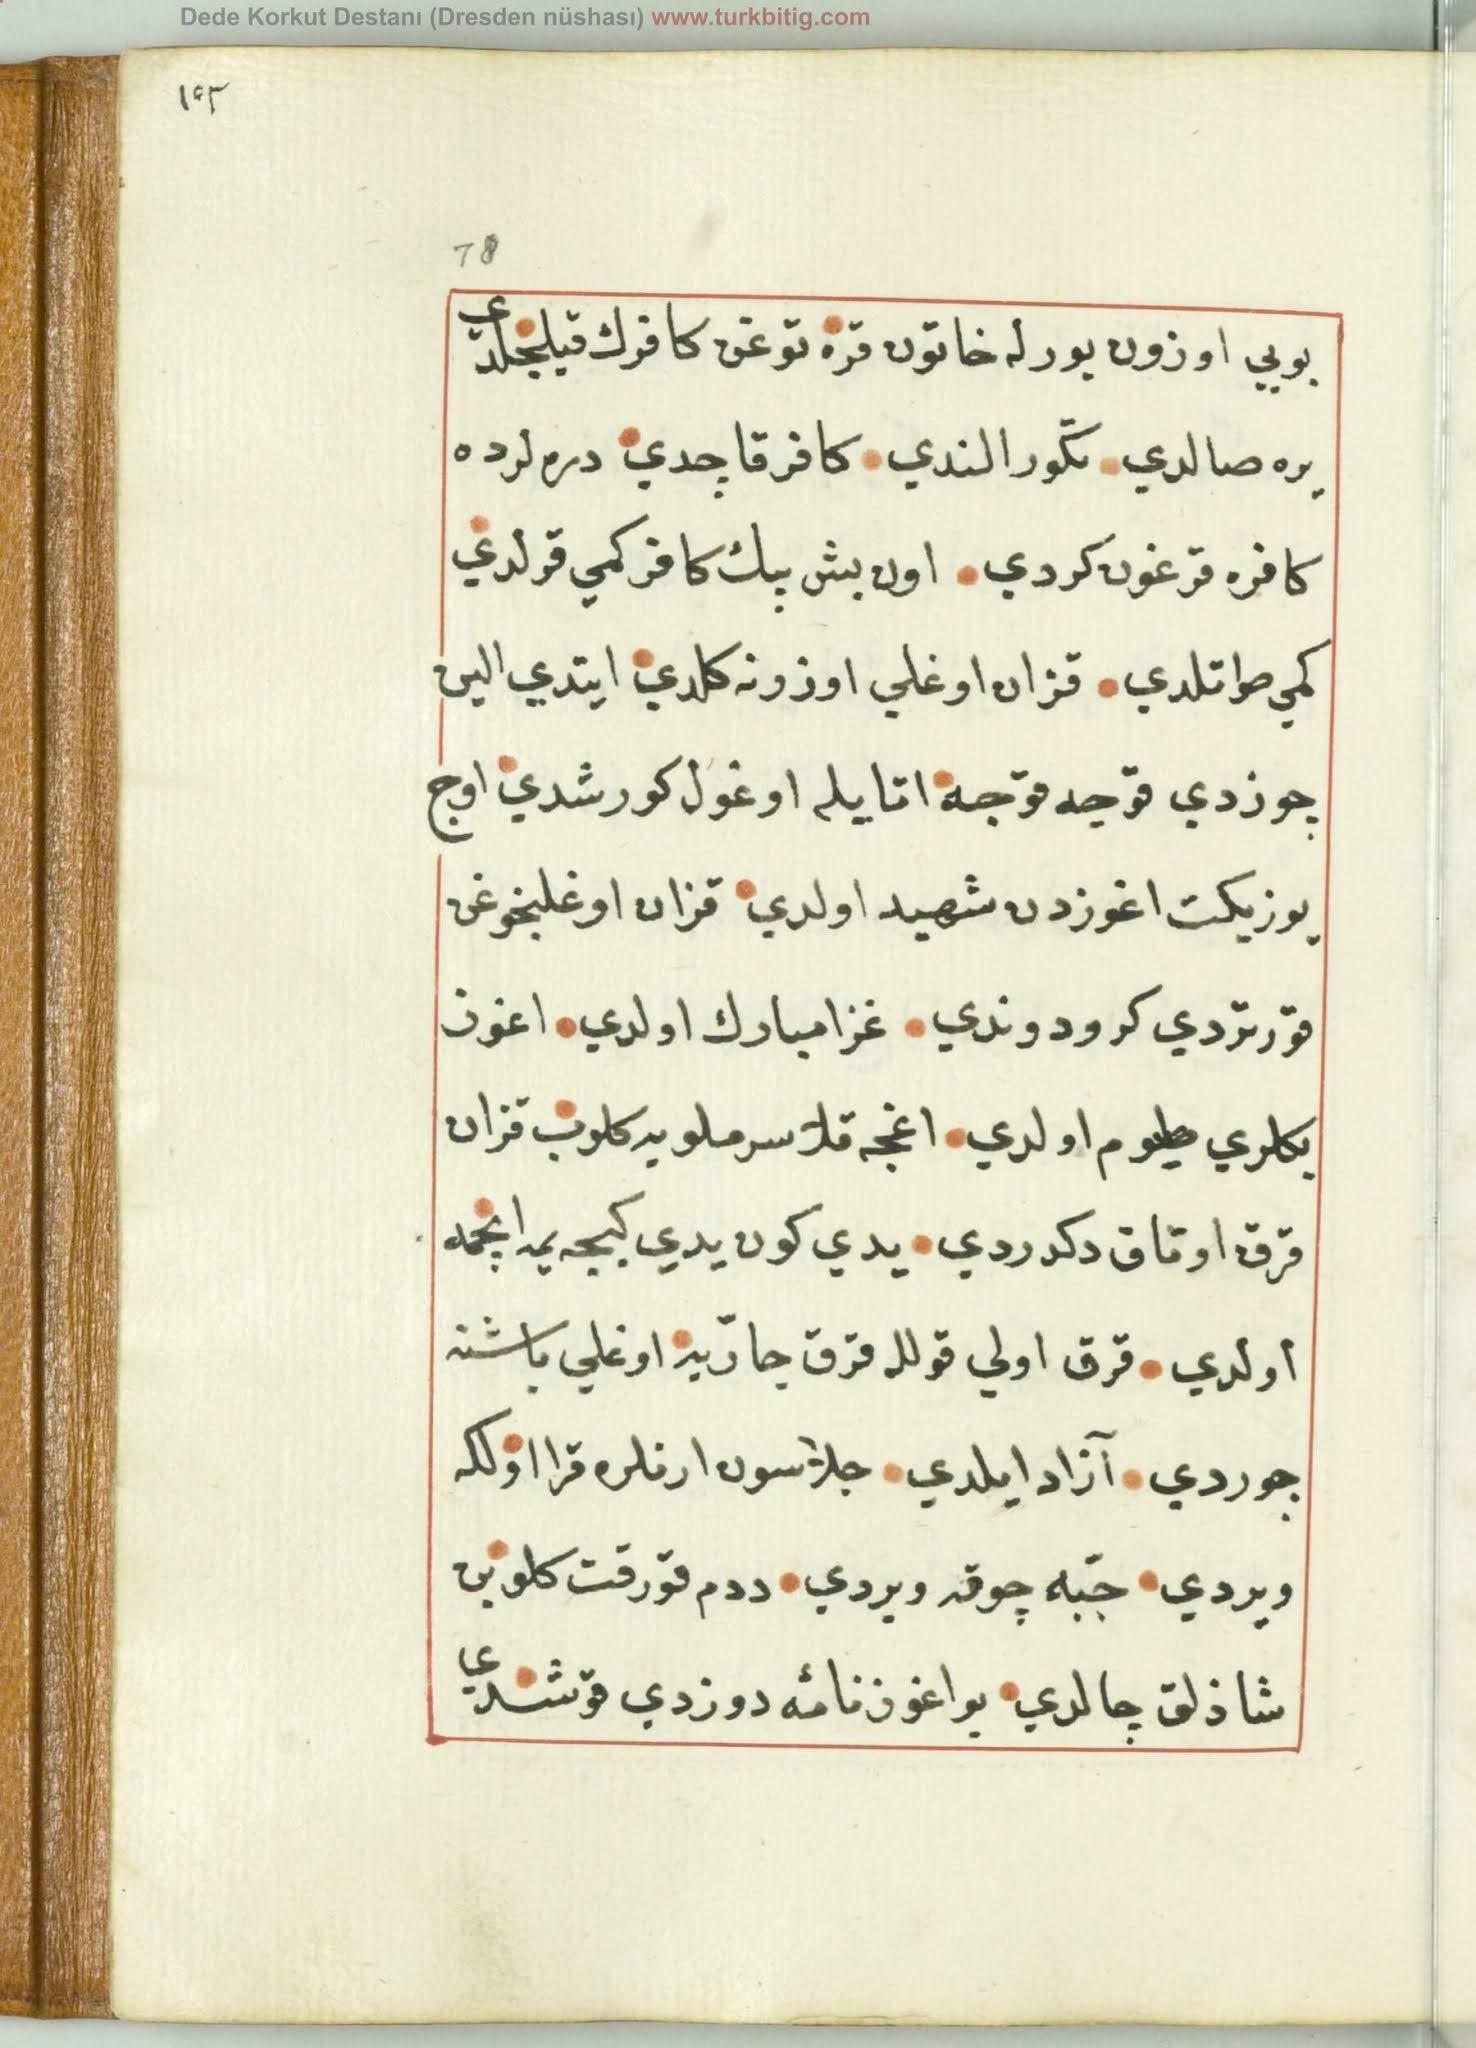 Dede Korkut Destanı (Dresden nüshası) www.turkbitig.com
١٥٣
78
بويي اوزون بورله خاتون قره توغن كافرك قيلجلدي
يره صالدي تكّور الندي كافر قاچدي دره لرده
كافره قرغون كردي اون بش بيك كافر كمي قولدي
كمي طوتلدي قزان اوغلي اوزونه كلدي ايتدي الين
چوزدي قوجه قوجه اتا يله اوغول كورشدي اوج
يوز يكت اغوزدن شهيد اولدي قزان اوغلنجوغن
قورتردي كرو دوندي غزا مبارك اولدي اغوز
بكلري طيوم اولدي اغجه قلا سرملويه كلوب قزان
قرق اوتاق دكدردي يدي كون يدي كيجه يمه ايچمه
أولدي قرق اولي قولله قرق جاريّه اوغلي باشنه
چوردي آزاد ايلدي جلاسون ارنلره قرا اولكه
ويردي جبّه چوقه ويردي ددم قورقت كلوبن
شاذلق چالدي بو اغوزنامه دوزدي قوشدي